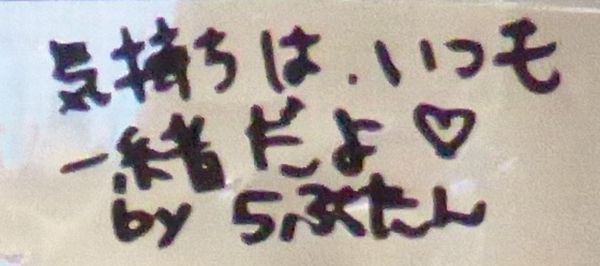 気持ちは、いつも
一緒だよ♡
by らぶたん